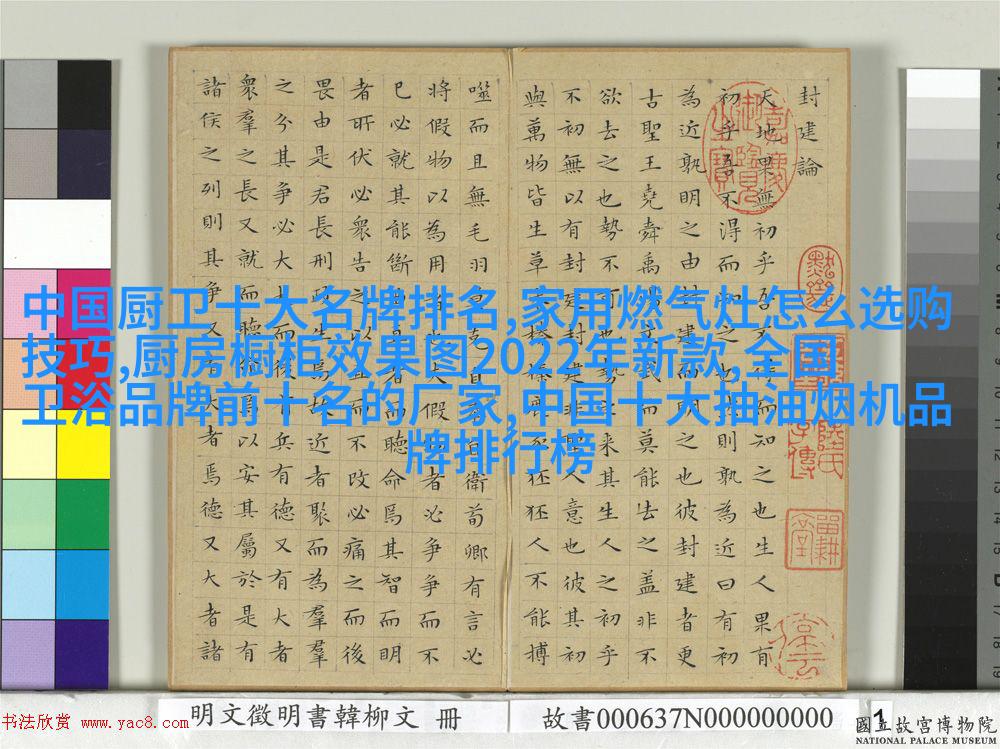 中国厨卫十大名牌排名,家用燃气灶怎么选购
技巧,厨房橱柜效果图2022年新款,全国
卫浴品牌前十名的厂家,中国十大抽油烟机品
牌排行榜
封建論
天地果無初乎吾不得而知之也生人果有
初乎吾不得而知之也然則孰為近曰有初
為近孰明之由封建而明之也彼封建者更
古聖王堯舜禹湯文武而莫能去之蓋非不
欲去之也勢不可也勢之來其生人之初乎
不初無以有封建封建非聖人意也彼其初
與萬物皆生草木榛榛鹿豕狉狉人不能搏
噬而且無毛羽莫克自奉自衛荀卿有言必
將假物以為用者也夫假物者必爭爭而不
已必就其能斷曲直者而聽命焉其智而明
者所伏必衆告之以直而不改必痛之而後
畏由是君長刑政生焉故近者聚而為羣
之分其爭必大大而後有兵有德又有大者
衆羣之長又就而聽命焉以安其屬於是有
諸侯之列則其爭又有大者焉德又大者諸
明文徵明書韓柳文 冊
故書000637N000000000
1
书法欣赏 www.yac8.com
國立故宮博物院
NATIONAL PALACE MUSEUM